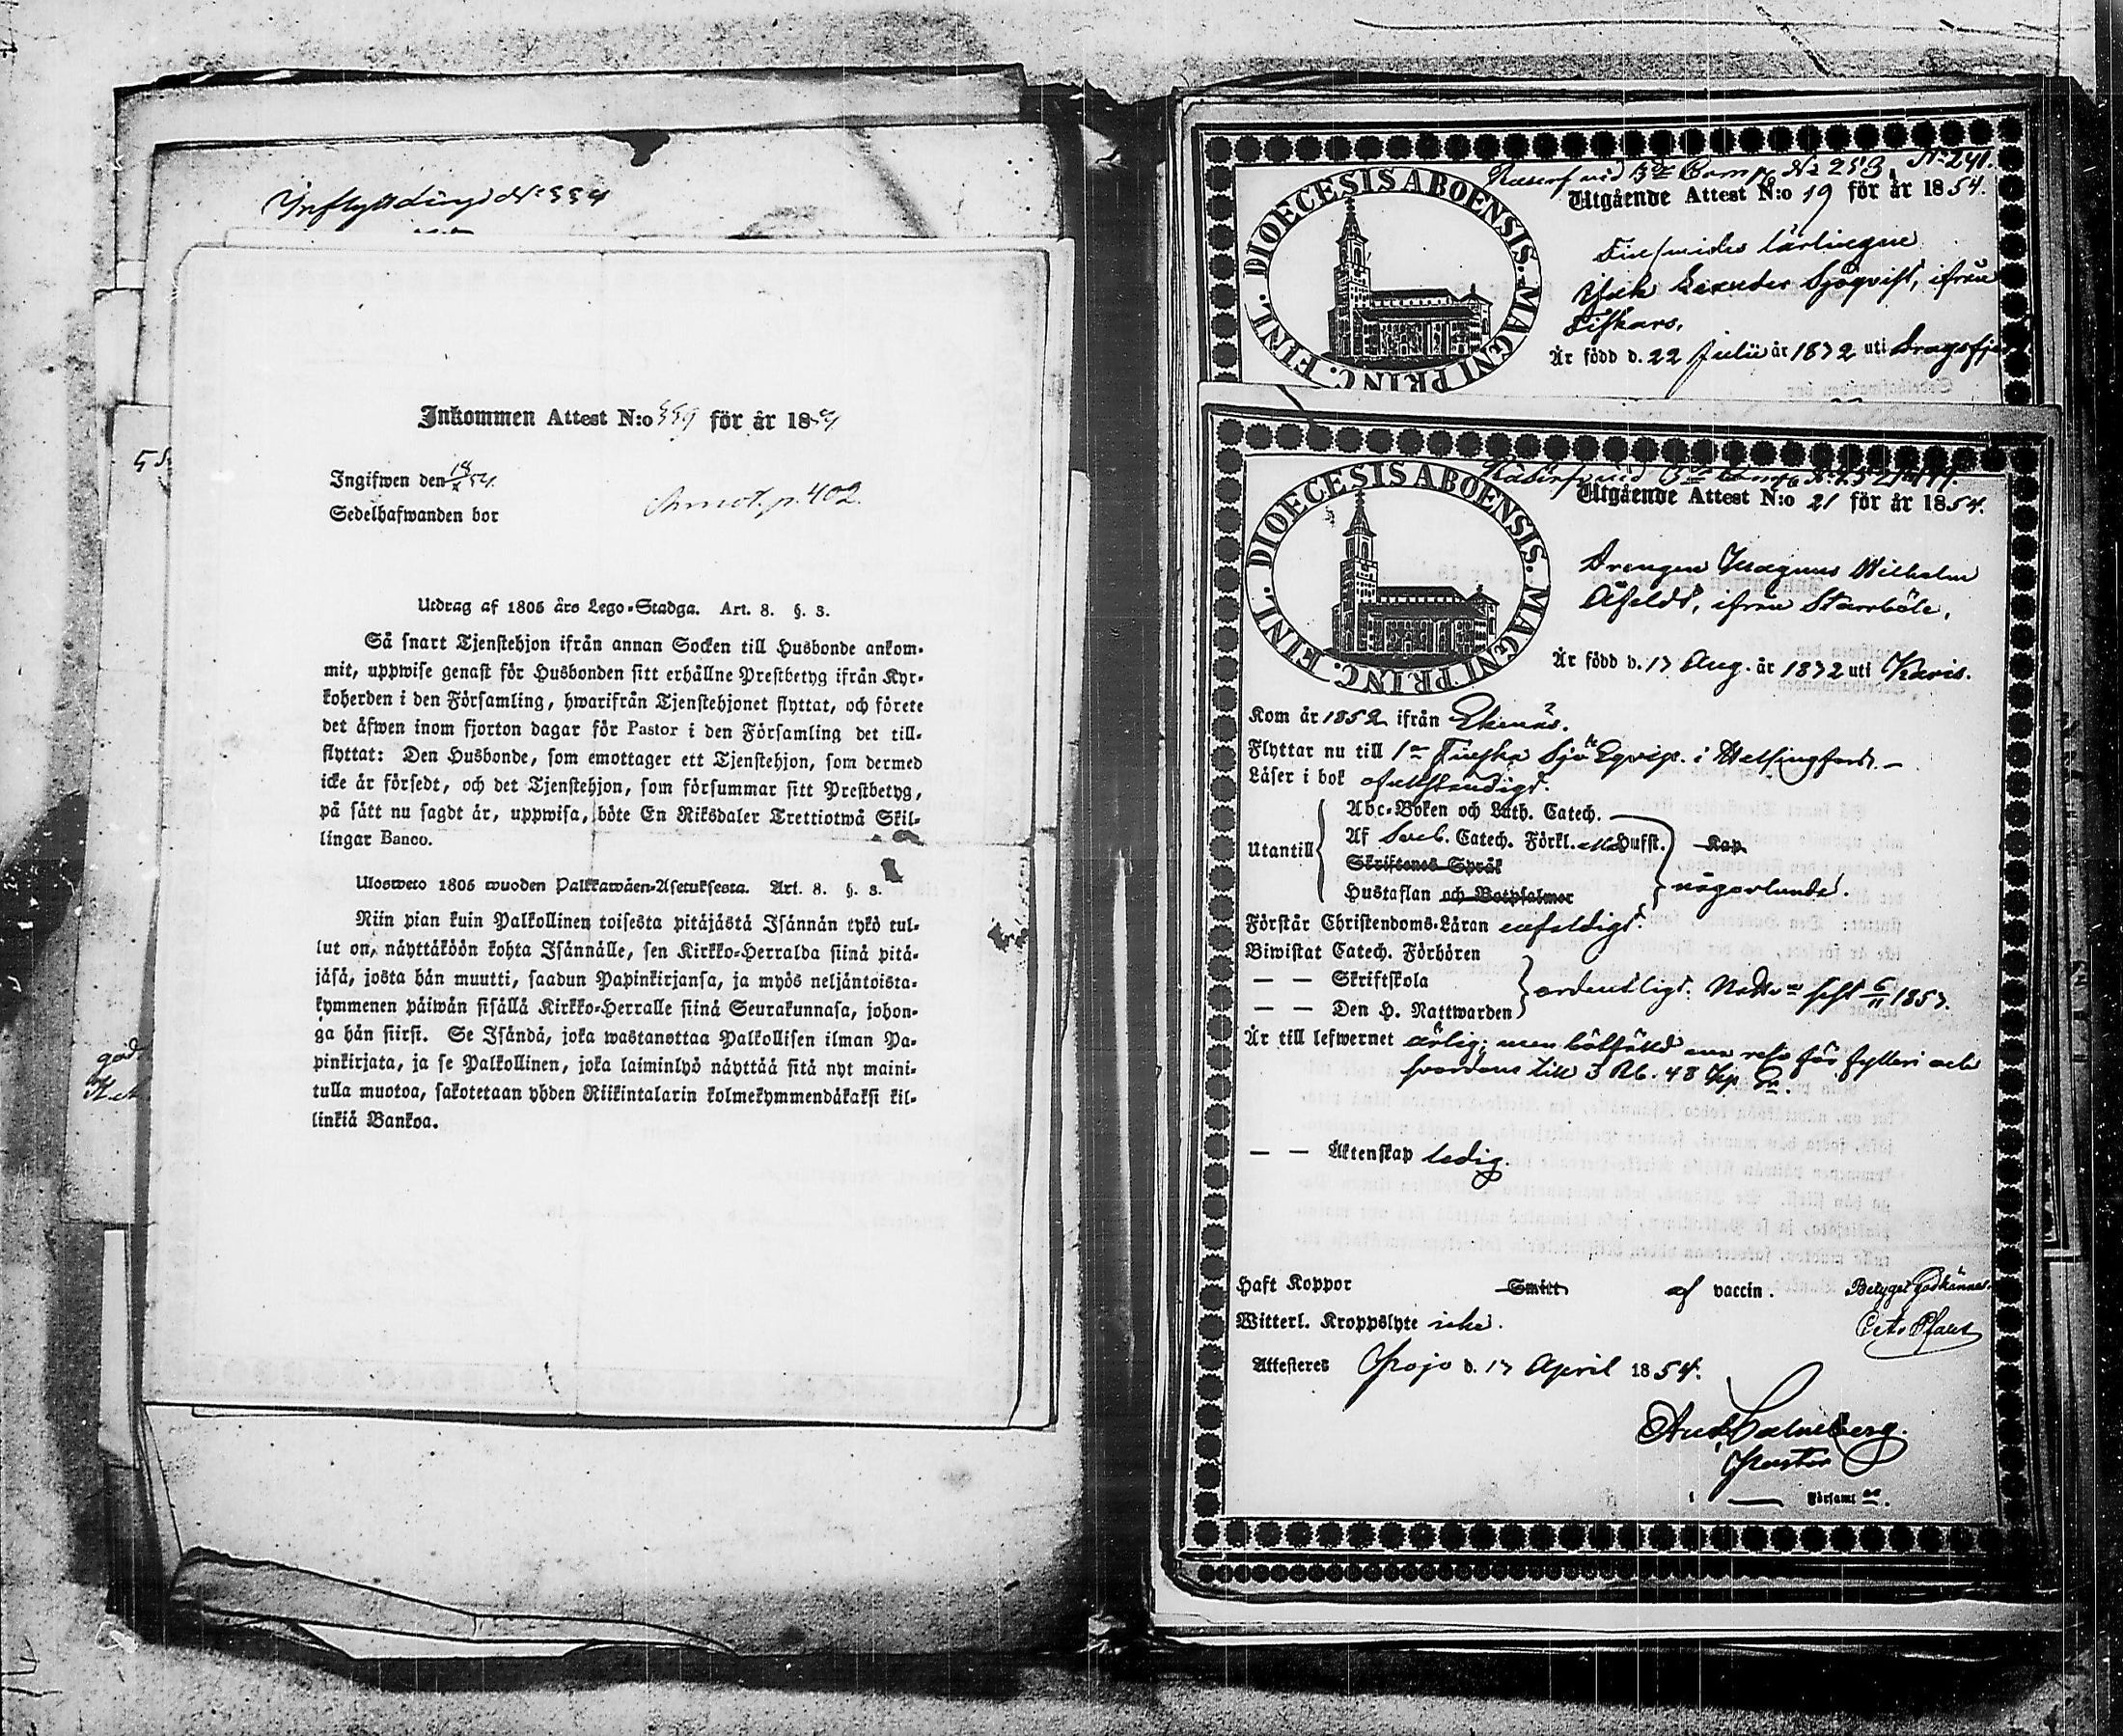 Inflyttning N:o 334
Inkommen Attest N:o 339 för år 1854
Ingifwen den 18/ 54.
Sedelhafwanden bor
Annot. p. 402.
Utdrag af 1805 års Lego-Stadga. Art. 8. §. 3.
Så snart Tjenstehjon ifrån annan Socken till Husbonde ankom-
mit, uppwise genast för Husbonden sitt erhållne Prestbetyg ifrån Kyr-
koherden i den Församling, hwarifrån Tjenstehjonet flyttat, och förete
det äfwen inom fjorton dagar för Pastor i den Församling det till-
flyttat: Den Husbonde, som emottager ett Tjenstehjon, som dermed
icke är försedt, och det Tjenstehjon, som försummar sitt Prestbetyg,
på sätt nu sagdt är, uppwisa, böte En Riksdaler Trettiotwå Skil-
lingar Banco.
Ulosweto 1805 wuoden Palkkawäen-Asetuksesta. Art. 8. §. 3.
Niin pian kuin Palkollinen toisesta pitäjästä Isännän tykö tul-
lut on, näyttäköön kohta Isännälle, sen Kirkko-Herralda siinä pitä-
jäsä, josta hän muutti, saadun Papinkirjansa, ja myös neljäntoista-
kymmenen päiwän sisällä Kirkko-Herralle siinä Seurakunnasa, johon-
ga hän siirsi. Se Isändä, joka wastanottaa Palkollisen ilman Pa-
pinkirjata, ja se Palkollinen, joka laiminlyö näyttää sitä nyt maini-
tulla muotoa, sakotetaan yhden Riikintalarin kolmekymmendäkaksi kil-
linkiä Bankoa.
DIOECESIS ABOENSIS. MAGNI PRINC. FINL.
N:o 241.
Utgående Attest N:o 19 för år 1854.
Finsmides lärlingen
Isak Sjöqvist, ifrån
Fiskars.
Är född d. 22 Julii år 1832 uti Dragsfj
DIOECESIS ABOENSIS. MAGNI PRINC. FINL.
Utgående Attest N:o 21 för år 1854.
Drengen Magnus Wilhelm
ifrån Starrböle,
Är född d. 17 Aug. år 1832 uti Karis.
Kom år 1852 ifrån Ekenäs.
Flyttar nu till 1:a Finska Sjö Eqvip. i Helsingfors.
Läser i bok ofullständigt.
Utantill
Abc-Boken och Luth. Catech.
Af Sveb. Catech. Förkl. Hufst. Kap.
Skriftenes Språk
Hustaflan och Botpsalmer
någorlunda.
Förstår Christendoms-Läran enfaldigt.
Biwistat Catech. Förhören
— — Skriftskola
— — Den H. Nattwarden
ordentligt. sist 6/11 1853.
Är till lefwernet ärlig; men bötfälld en resa för fylleri och
svordom till 3 Rb. 43 kop. S:r.
— — Äktenskap ledig.
Haft Koppor Smitt af vaccin. Betyget godkännes.
Witterl. Kroppslyte icke.
Attesteres Pojo d. 17 April 1854.
Pastor
i — Församl